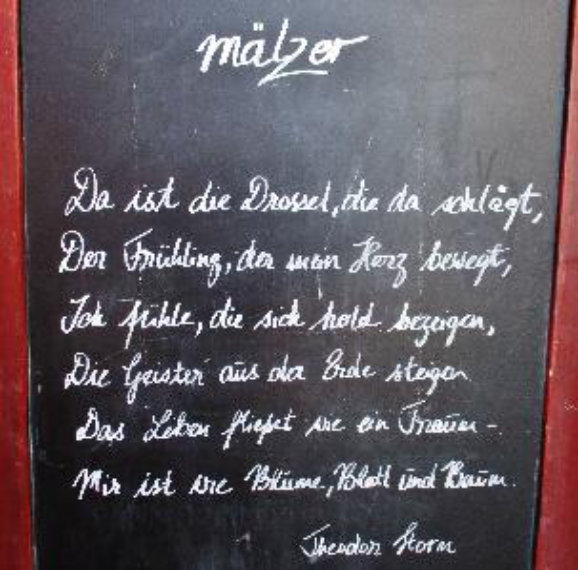 mälzer
Da ist die Drossel, die da schlägt,
Der Frühling, der mein Herz bewegt,
Ich fühle, die sich hold bezeigen,
Die Geister aus der Erde steigen
Das Leben fließet wie ein Traum-
Mir ist wie Blume, Blatt und Baum.
Theodor Storm